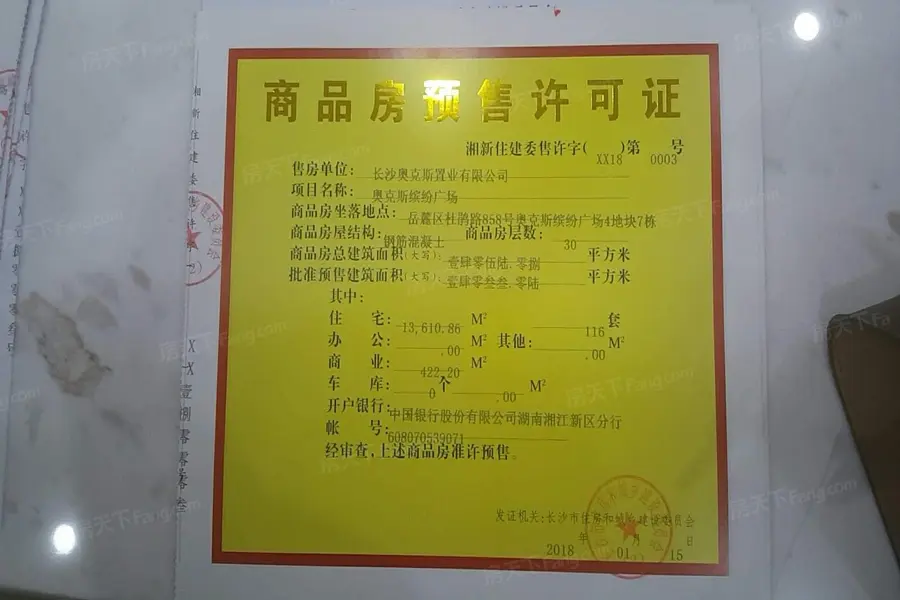 商品房预售许可证
湘新住建委售许字(XX18)第0003号
售房单位：长沙奥克斯置业有限公司
项目名称：奥克斯缤纷广场
商品房坐落地点：岳麓区杜鹃路858号奥克斯缤纷广场4地块7栋
商品房屋结构：钢筋混凝土 商品房层数：30
商品房总建筑面积(大写)：壹肆零伍陆.零捌 平方米
批准预售建筑面积(大写)：壹肆零叁叁.零陆 平方米
其中：
住 宅：13,610.86 M² 116 套
办 公：.00 M² 其他：.00 M²
商 业：422.20 M²
车 库：0 个 .00 M²
开户银行：中国银行股份有限公司湖南湘江新区分行
帐 号：608070539071
经审查,上述商品房准许预售。
发证机关：长沙市住房和城乡建设委员会
2018年01月15日